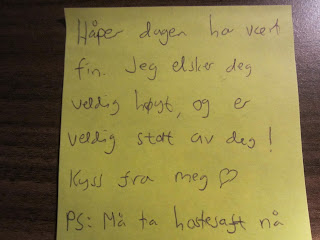 Håper dagen har vært
fin. Jeg elsker deg
veldig høyt, og er
veldig stolt av deg!
Kyss fra meg ♡
PS: Må ta hostesaft nå